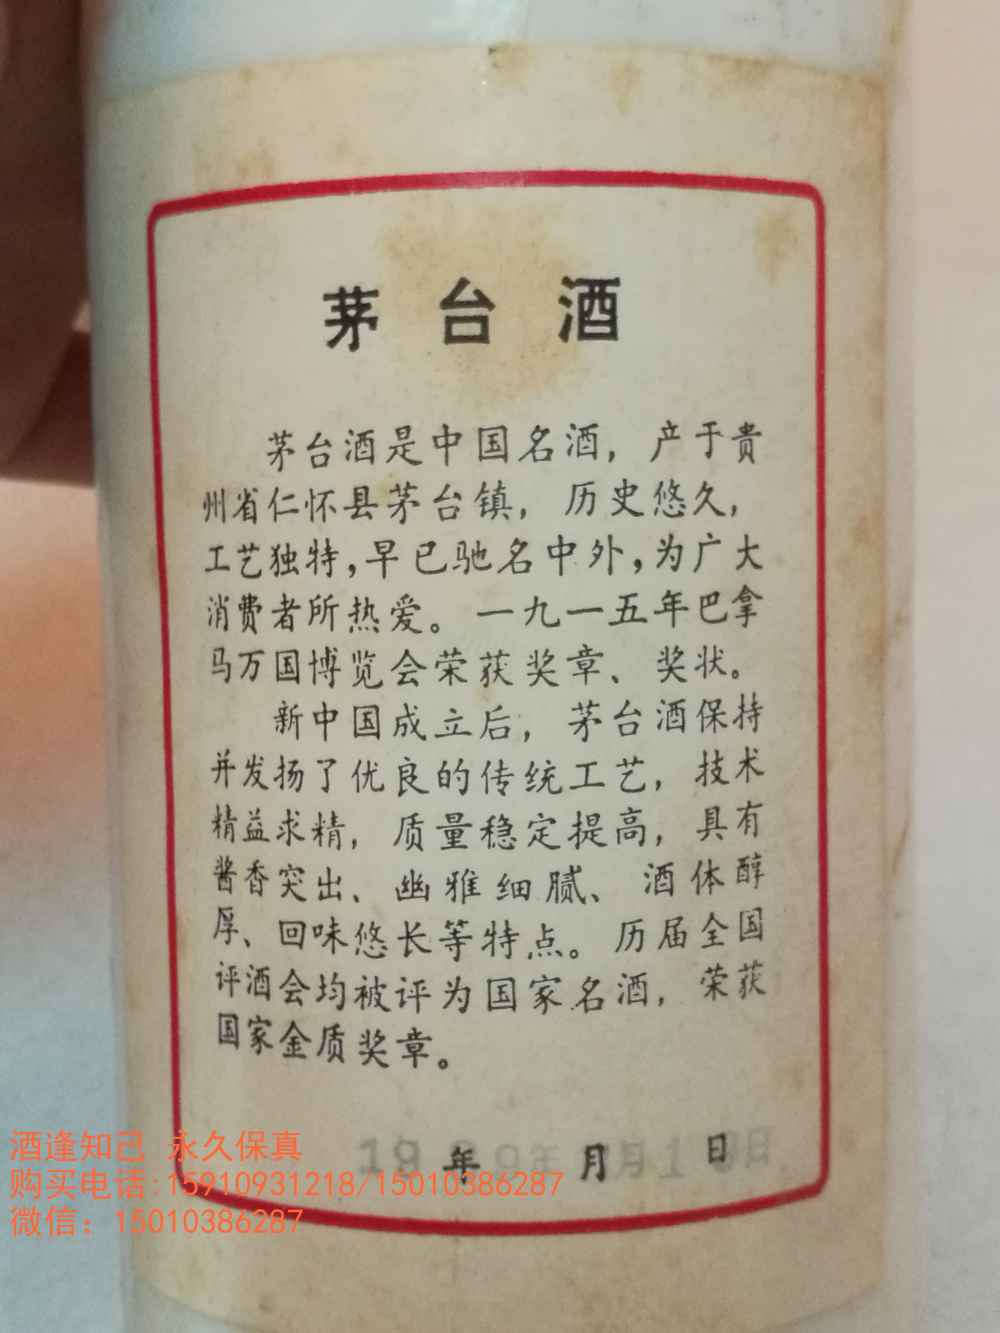 茅台酒
茅台酒是中国名酒，产于贵
州省仁怀县茅台镇，历史悠久，
工艺独特，早已驰名中外，为广大
消费者所热爱。一九一五年巴拿
马万国博览会荣获奖章、奖状。
新中国成立后，茅台酒保持
并发扬了优良的传统工艺，技术
精益求精，质量稳定提高，具有
酱香突出、幽雅细腻、酒体醇
厚、回味悠长等特点。历届全国
评酒会均被评为国家名酒，荣获
国家金质奖章。
19 年 月 日
酒逢知己 永久保真
购买电话:15910931218/15010386287
微信：15010386287